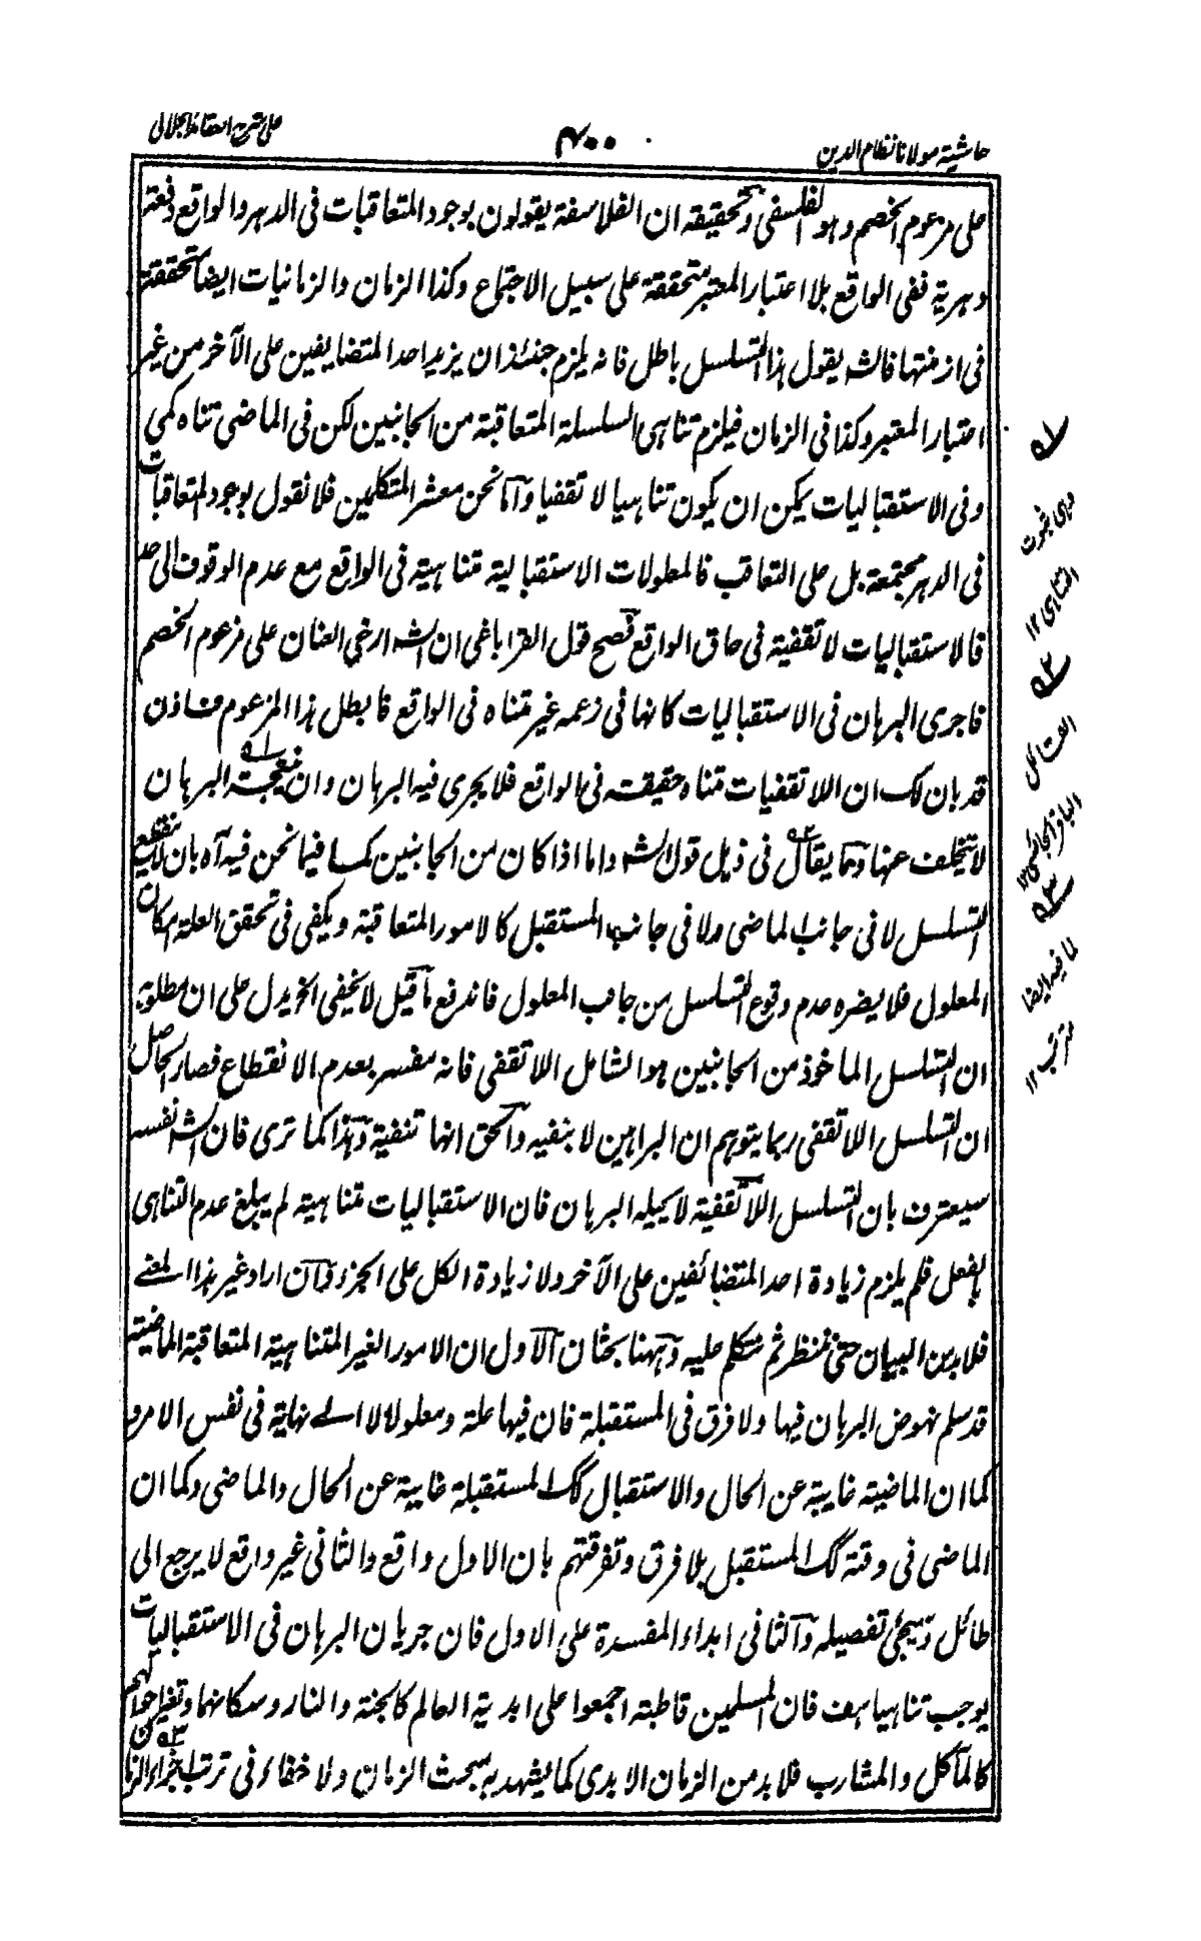 حاشية مولانا نظام الدين
۴۰۰
على شرح العقائد الجلالى
على مزعوم الخصم وهو الفلسفى وتحقيقه ان الفلاسفة يقولون بوجود المتعاقبات فى الدهر والواقع دفعة
دهرية ففى الواقع بلا اعتبار المعتبر متحققة على سبيل الاجتماع وكذا الزمان والزمانيات ايضا متحققة
فى ازمنتها فالشه يقول هذا التسلسل باطل فانه يلزم حينئذ ان يزيد احد المتضايفين على الآخر من غير
اعتبار المعتبر وكذا فى الزمان فيلزم تناهى السلسلة المتعاقبة من الجانبين لكن فى الماضى تناه كمى
وفى الاستقباليات يمكن ان يكون تناهيا لا تقفيا واما نحن معشر المتكلمين فلا نقول بوجود المتعاقبات
فى الدهر مجتمعة بل على التعاقب فالمعلولات الاستقبالية متناهية فى الواقع مع عدم الوقوف الى حد
فالاستقباليات لا تقفية فى حاق الواقع فصح قول القراباغى ان الشه ارخى العنان على مزعوم الخصم
فاجرى البرهان فى الاستقباليات كانها فى زعمه غير متناه فى الواقع فابطل هذا المزعوم فاذن
قد بان لك ان اللاتقفيات متناه حقيقة فى الواقع فلا يجرى فيه البرهان وان نتيجة البرهان
لا يتخلف عنها وما يقال فى ذيل قول الشه واما اذا كان من الجانبين كما فيما نحن فيه آه بان لا ينقطع
التسلسل لا فى جانب الماضى ولا فى جانب المستقبل كالامور المتعاقبة ويكفى فى تحقق العلة امكان
المعلول فلا يضره عدم وقوع التسلسل من جانب المعلول فاندفع ما قيل لا يخفى الخ يدل على ان مطلوبه
ان التسلسل الماخوذ من الجانبين هو الشامل اللاتقفى فانه مفسر بعدم الانقطاع فصار الحاصل
ان التسلسل اللاتقفى ربما يتوهم ان البراهين لا ينفيه والحق انها تنفيه وهذا كما ترى فان الشه نفسه
سيعترف بان التسلسل اللاتقفية لا يحيله البرهان فان الاستقباليات متناهية لم يبلغ عدم التناهى
بالفعل فلم يلزم زيادة احد المتضائفين على الآخر ولا زيادة الكل على الجزء وان اراد غير هذا المعنے
فلا بد من البيان حتى ننظر ثم نتكلم عليه وههنا بحثان الاول ان الامور الغير المتناهية المتعاقبة الماضية
قد سلم نهوض البرهان فيها ولا فرق فى المستقبلة فان فيها علة ومعلولا لا الے نهاية فى نفس الامر و
كما ان الماضية غايبة عن الحال والاستقبال كك المستقبلة غايبة عن الحال والماضى وكما ان
الماضى فى وقته كك المستقبل بلا فرق وتفرقتهم بان الاول واقع والثانى غير واقع لا يرجع الى
طائل وسيجئ تفصيله والثانى ابداء المفسدة على الاول فان جريان البرهان فى الاستقباليات
يوجب تناهيا هف فان المسلمين قاطبة اجمعوا على ابدية العالم كالجنة والنار وسكانهما وتغير احوالهم
كالمآكل والمشارب فلا بد من الزمان الابدى كما يشهد به مبحث الزمان ولا خفاء فى ترتب اجزاء الزمان
ه۱
وهى ثبوت
التناهى ۱۲
ه۲
القائل
ه۳
لما فيه ايضا
ترتب ۱۲